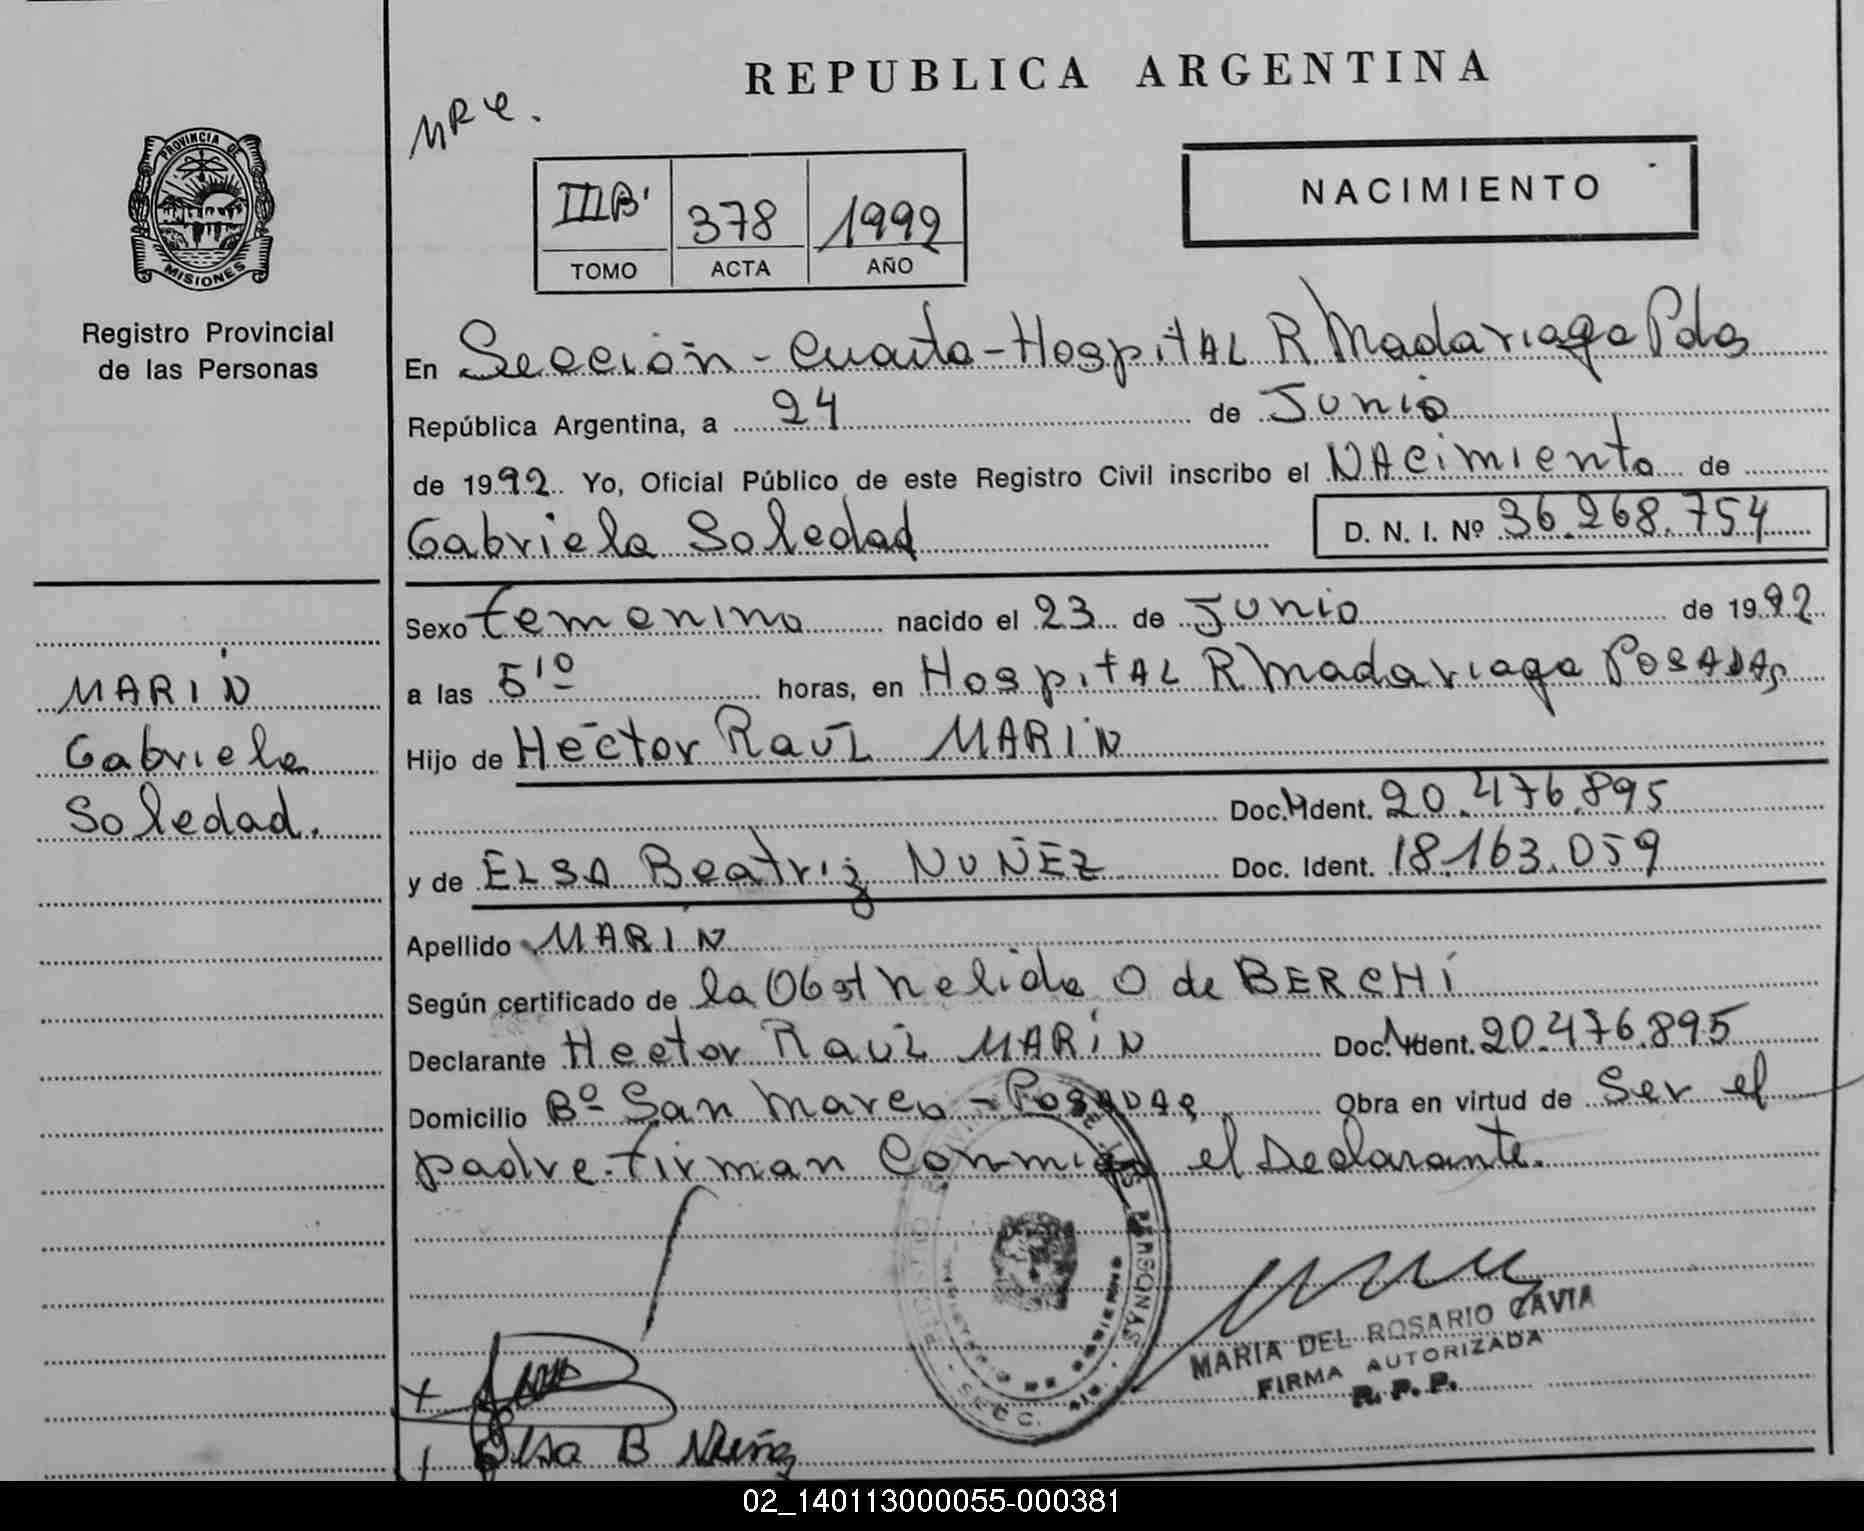 REPUBLICA ARGENTINA
PROVINCIA DE
MISIONES
Registro Provincial
de las Personas
IIIB' 378 1992
TOMO ACTA AÑO
NACIMIENTO
En Sección - Cuarta - Hospital R Madariaga Pdas
República Argentina, a 24 de Junio
de 1992. Yo, Oficial Público de este Registro Civil inscribo el Nacimiento de
Gabriela Soledad D. N. I. Nº 36.268.754
Sexo femenino nacido el 23 de Junio de 1992
a las 5 10 horas, en Hospital R Madariaga Posadas
Hijo de Héctor Raúl MARIN
Doc. Ident. 20.476.895
y de ELSA Beatriz NUÑEZ Doc. Ident. 18.163.059
Apellido MARIN
Según certificado de la Obst Nelida O de BERCHI
Declarante Hector Raúl MARIN Doc. Ident. 20.476.895
Domicilio Bº San Marco - Posadas Obra en virtud de Ser el
padre. firman Conmigo el Declarante.
MARÍN
Gabriela
Soledad.
MARIA DEL ROSARIO CAVIA
FIRMA AUTORIZADA
R. P. P.
Elsa B Nuñez
02_140113000055-000381